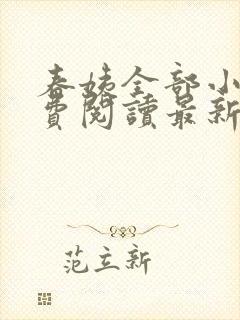 春姨全部小
費閱讀最新
范立新